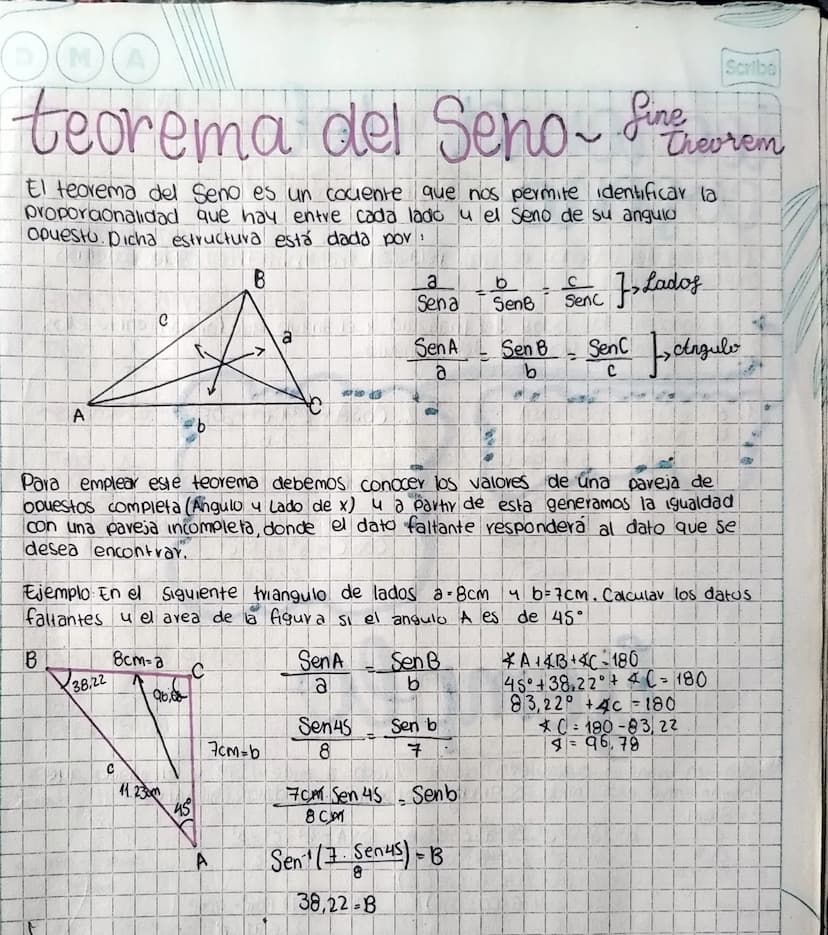 D M A
Scribe
teorema del Seno~ Sine Theorem
El teorema del Seno es un cociente que nos permite identificar la
proporcionalidad que hay entre cada lado y el Seno de su angulo
opuesto. Dicha estructura está dada por:
B
c
a
A
C
b
a/Sena = b/SenB = c/SenC }→ Lados
SenA/a = SenB/b = SenC/c }→ Angulo
Para emplear este teorema debemos conocer los valores de una pareja de
opuestos completa (Angulo y Lado de x) y a partir de esta generamos la igualdad
con una pareja incompleta, donde el dato faltante responderá al dato que se
desea encontrar.
Ejemplo: En el siguiente triangulo de lados a=8cm y b=7cm. Calcular los datos
faltantes y el area de la figura si el angulo A es de 45°
B
8cm=a
C
38,22
7cm=b
c
11.23cm
45°
A
SenA/a = SenB/b
Sen45/8 = Sen b/7
7cm.Sen45/8cm = Senb
Sen⁻¹(7.Sen45/8) = B
38,22=B
∡A+∡B+∡C=180
45°+38,22°+∡C=180
83,22°+∡C=180
∡C=180-83,22
∡=96,78